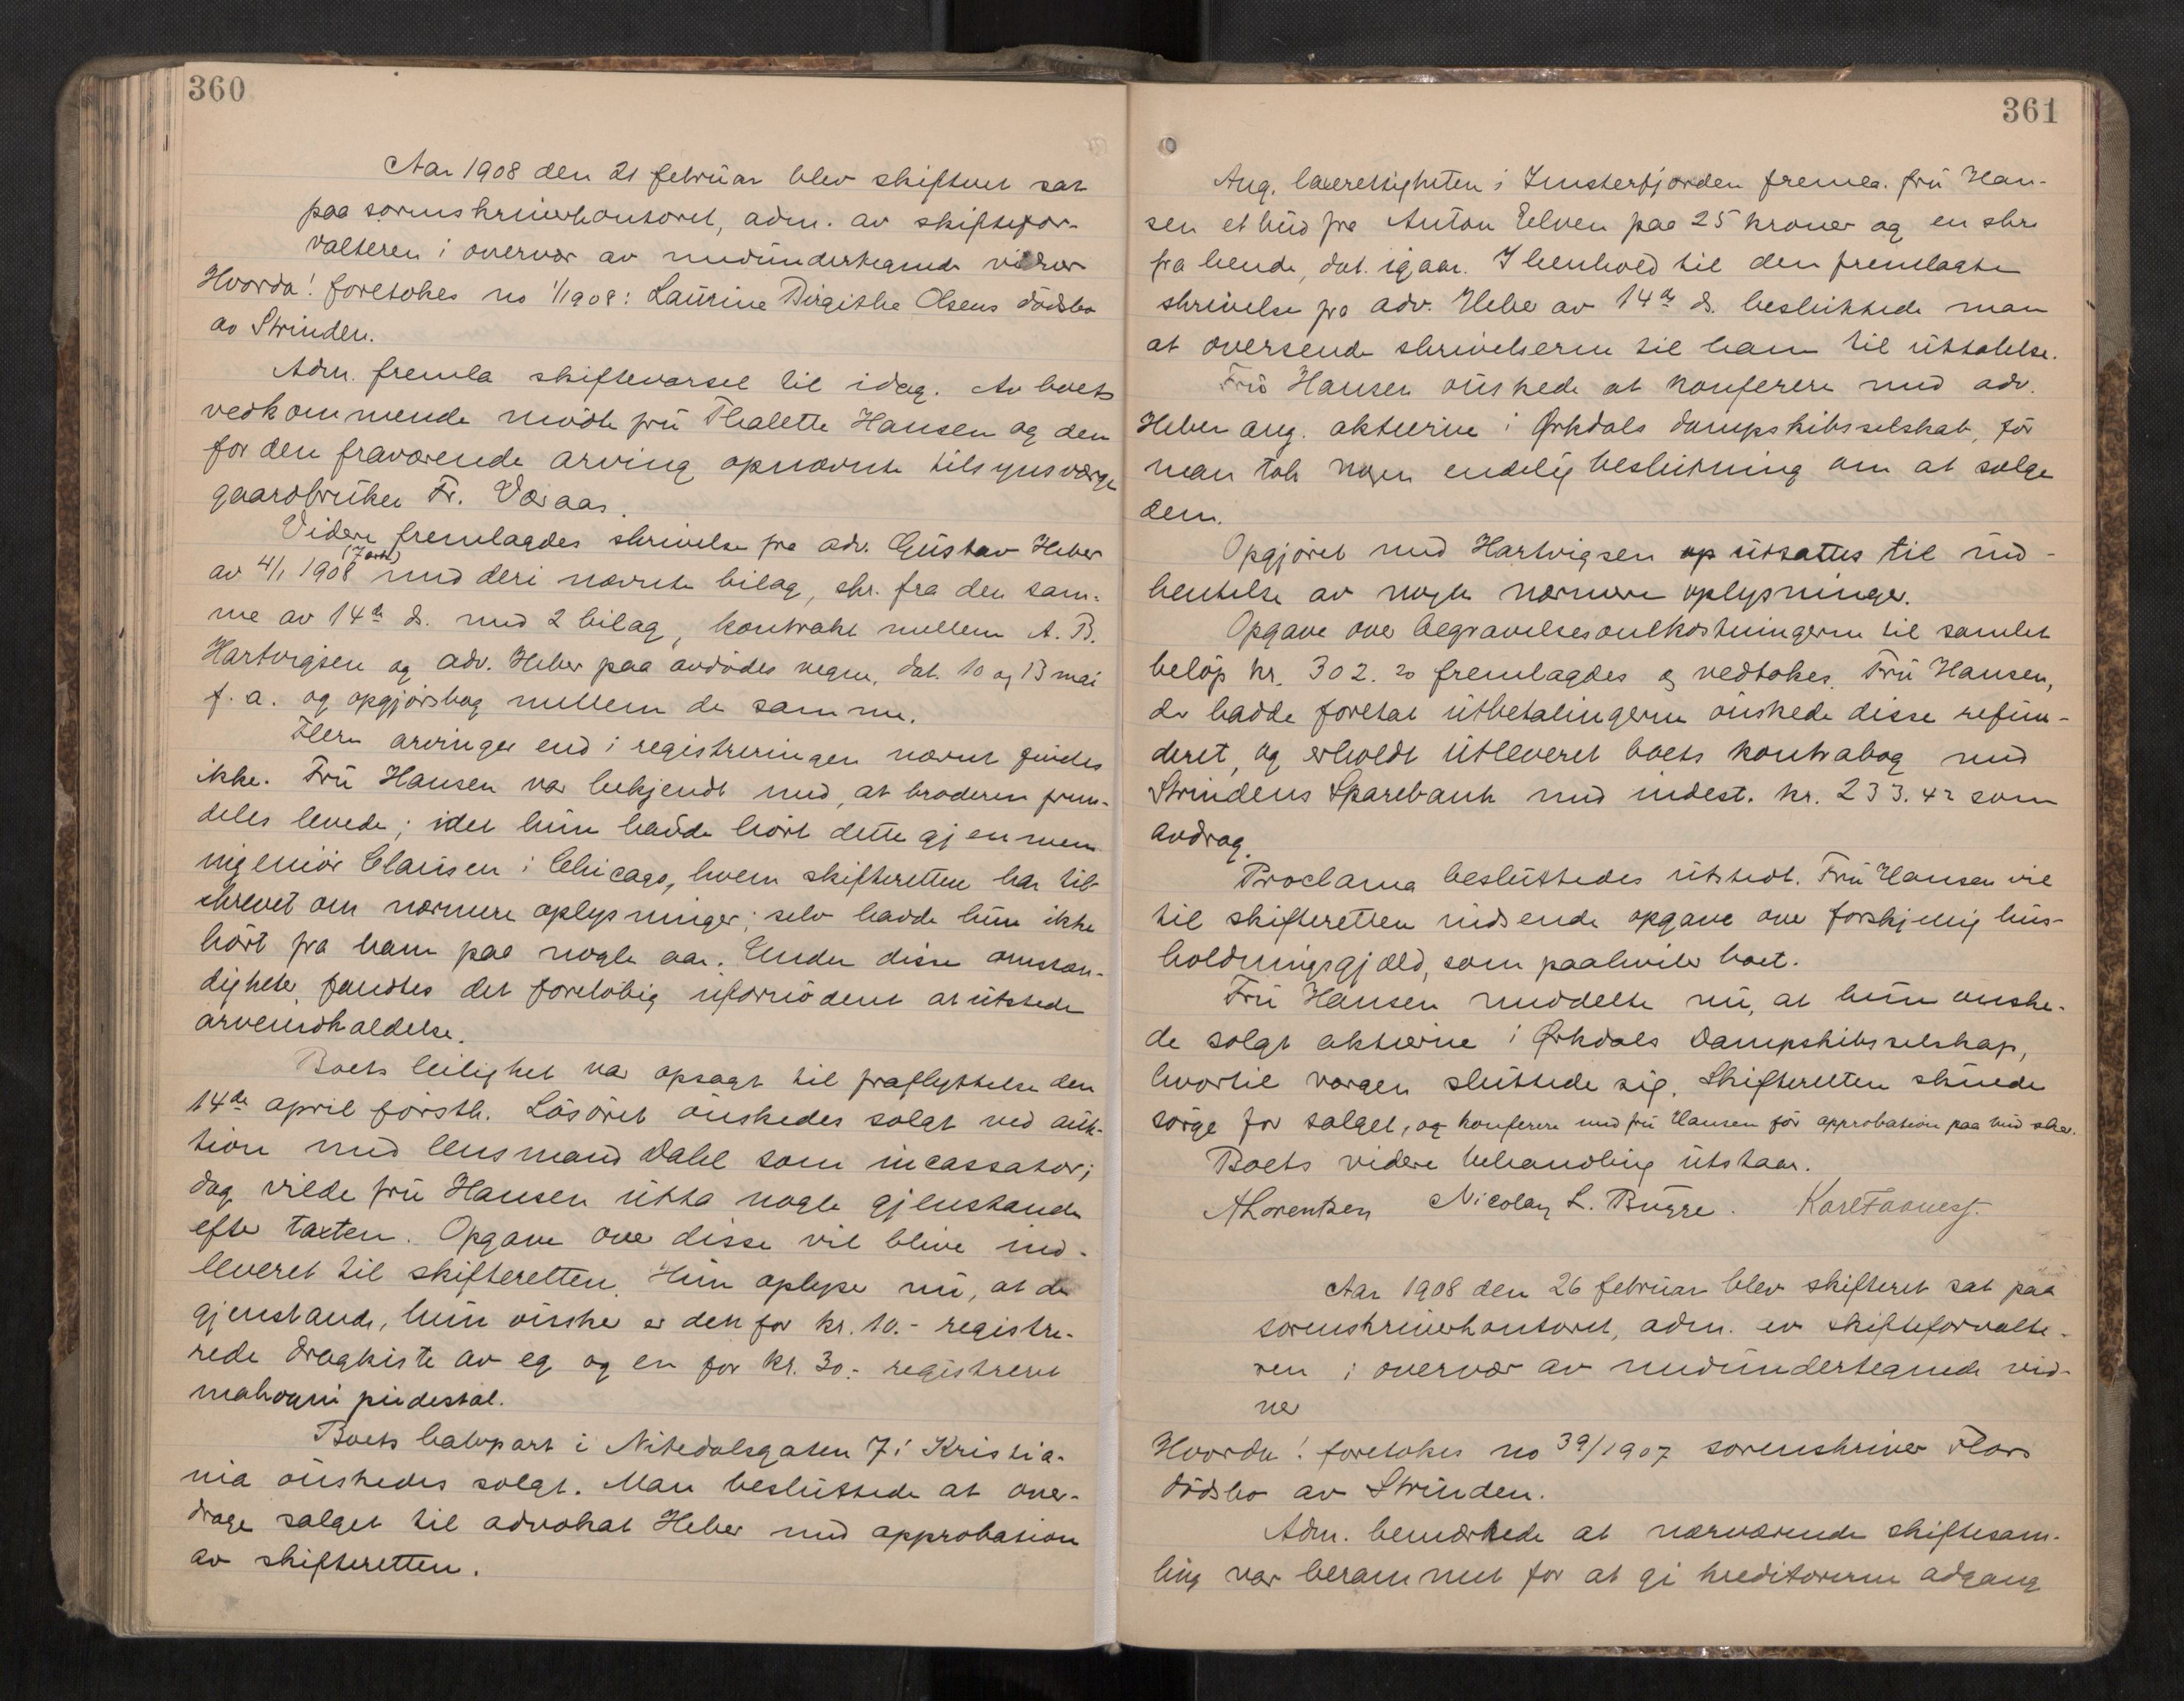 360
Aar 1908 den 21 februar blev skifteret sat
paa sorenskriverkontoret, adm. av skiftefor-
valteren i overvær av medundertegnede vidner
Hvorda! foretokes no 1/1908: Laurine Birgithe Olsens dødsbo
av Strinden.
Adm. fremla skiftevarsel til idag. Av boets
vedkommende mødte fru Thalette Hansen og den
for den fraværende arving opnævnte tilsynsværge
gaardbruker Fr. Væraas.
Videre fremlagdes skrivelse fra adv. Gustav Heber
av 4/1 1908 med deri nævnte bilag, skr. fra den sam-
me av 14de ds. med 2 bilag, kontrakt mellem A. B.
Hartvigsen og adv. Heber paa avdødes vegne, dat. 10 og 13 mai
f. a. og opgjørsbog mellem de samme.
Flere arvinger end i registreringen nævnt findes
ikke. Fru Hansen var bekjendt med, at broderen frem-
deles levede; idet hun hadde hørt dette gjennem
ingeniør Clausen i Chicago, hvem skifteretten har til-
skrevet om nærmere oplysninger; selv hadde hun ikke
hørt fra ham paa nogle aar. Under disse omstæn-
digheter fandtes det foreløbig ufornødent at utstede
arveindkaldelse.
Boets leilighet var opsagt til fraflyttelse den
14de april førstk. Løsøret ønskedes solgt ved auk-
tion med lensmand Dahl som incassator;
dog vilde fru Hansen utta nogle gjenstande
efter taxten. Opgave over disse vil blive ind-
leveret til skifteretten. Hun oplyser nu, at de
gjenstande, hun ønsker er den for kr. 10.- registre-
rede dragkiste av eg og en for kr. 30.- registreret
mahogni piedestal.
Boets halvpart i Nitedalsgaten 7 i Kristia-
nia ønskedes solgt. Man besluttede at over-
drage salget til advokat Heber med approbation
av skifteretten.
361
Ang. lakserettigheten i Imsterfjorden fremla. fru Han-
sen et bud fra Anton Eelven paa 25 kroner og en skr.
fra hende, dat. igaar. I henhold til den fremlagte
skrivelse fra adv. Heber av 14de ds. besluttede man
at oversende skrivelserne til ham til uttalelse.
Fru Hansen ønskede at konferere med adv.
Heber ang. aktierne i Ørkdals dampskibsselskab, før
man tok nogen endelig beslutning om at sælge
dem.
Opgjøret med Hartvigsen utsattes til ind-
hentelse av nogle nærmere oplysninger.
Opgave over begravelsesomkostningerne til samlet
beløp kr. 302.20 fremlagdes og vedtokes. Fru Hansen,
der hadde foretat utbetalingerne ønskede disse refun-
deret, og erholdt utleveret boets kontrabog med
Strindens Sparebank med indest. kr. 233.42 som
avdrag.
Proclama besluttedes utstedt. Fru Hansen vil
til skifteretten indsende opgave over forskjellig hus-
holdningsgjæld, som paahviler boet.
Fru Hansen meddelte nu, at hun ønske-
de solgt aktierne i Ørkdals Dampskibsselskap,
hvortil værgen sluttede sig. Skifteretten skulde
sørge for salget, og konferere med fru Hansen før approbation paa bud sker.
Boets videre behandling utstaar.
ALorentzen Nicolay L. Bugge. Karl
Aar 1908 den 26 februar blev skifteret sat paa
sorenskriverkontoret, adm. av skifteforvalte-
ren i overvær av medundertegnede vid-
ner
Hvorda! foretokes no 39/1907 sorenskriver Flors
dødsbo av Strinden.
Adm. bemærkede at nærværende skiftesam-
ling var berammet for at gi kreditorerne adgang